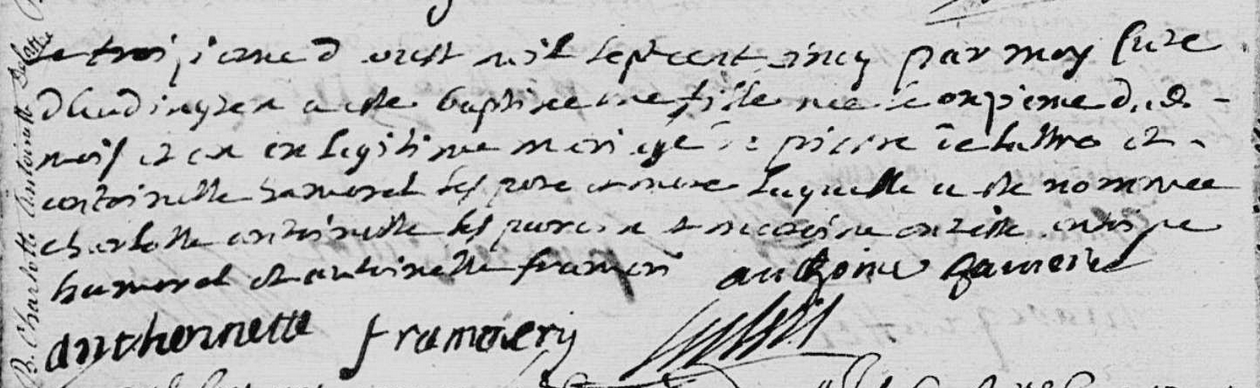 B. Charlotte Antoinette Delattre
Le troisieme d'oust mil sept cent cincq par moy Curé
d'Audinghen a esté baptisée une fille née le onzieme dudt
mois et an en legitime mariage de pierre de lattre et
antoinette hamerel ses pere et mere laquelle a esté nommée
charlotte antoinette ses parein et mareine ont esté antoine
hamerel et antoinette framery anthoine
anthoinette framery